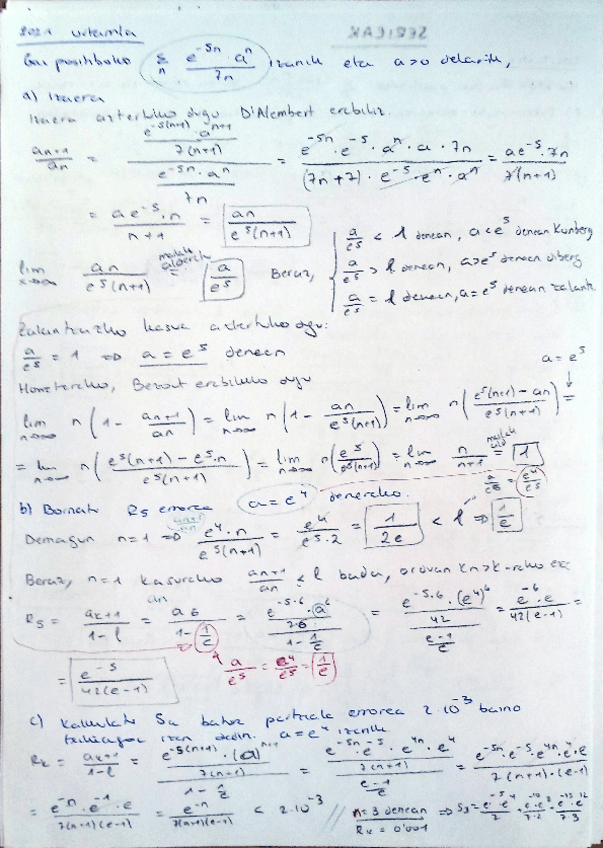 2021 urtarrila
Gai positiboko Σ_n e^{-5n} · a^n / 7n izanik eta a>0 delarik,
a) Izaera
Izaera aztertuko dugu D'Alembert erabiliz.
a_{n+1}/a_n = (e^{-5(n+1)} · a^{n+1} / 7(n+1)) / (e^{-5n} · a^n / 7n) = e^{-5n} · e^{-5} · a^n · a · 7n / (7n+7) · e^{-5} · e^n · a^n = ae^{-5} · 7n / 7(n+1)
= ae^{-5} · n / n+1 = an / e^5(n+1)
lim_{n→∞} an / e^5(n+1) = a/e^5 Beraz,
a/e^5 < 1 denean, a<e^5 denean Konberg
a/e^5 > 1 denean, a>e^5 denean diberg
a/e^5 = 1 denean, a=e^5 denean zalantz.
Zalantzazko kasua aztertuko dugu:
a/e^5 = 1 ⇒ a = e^5 denean
Horretarako, erabiliko dugu
a = e^5
lim_{n→∞} n(1 - a_{n+1}/a_n) = lim_{n→∞} n(1 - an/e^5(n+1)) = lim_{n→∞} n(e^5(n+1) - an / e^5(n+1)) =
= lim_{n→∞} n(e^5(n+1) - e^5·n / e^5(n+1)) = lim_{n→∞} n(e^5 / e^5(n+1)) = lim_{n→∞} n/n+1 = 1
b) Bornatu R_5 errorea a = e^4 denerako.
a/e^5 = e^4/e^5
Demagun n=1 ⇒ e^4 · n / e^5(n+1) = e^4 / e^5·2 = 1/2e < 1 ⇒ 1/e
Beraz, n=1 kasurako a_{n+1}/a_n < l bada,
R_5 = a_{k+1}/1-l = a_6 / 1-1/e = (e^{-5·6} · a^6 / 7·6) / (1-1/e) = (e^{-5·6} · (e^4)^6 / 42) / (e-1/e) = e^{-6} · e / 42(e-1) =
a/e^5 = e^4/e^5 = 1/e
= e^{-5} / 42(e-1)
c) Kalkulatu S_n batura partziala errorea 2·10^{-3} baino
txikiagoa izan dadin. a = e^4 izanik
R_k = a_{k+1}/1-l = (e^{-5(n+1)} · (a)^{n+1} / 7(n+1)) / (1-1/e) = (e^{-5n} · e^{-5} · e^{4n} · e^4 / 7(n+1)) / (e-1/e) = e^{-5n} · e^{-5} · e^{4n} · e^4 · e / 7(n+1)·(e-1)
= e^{-n} · e^{-1} · e / 7(n+1)(e-1) = e^{-n} / 7(n+1)(e-1) < 2·10^{-3} // n=3 denean R_k = 0'001 ⇒ S_3 =